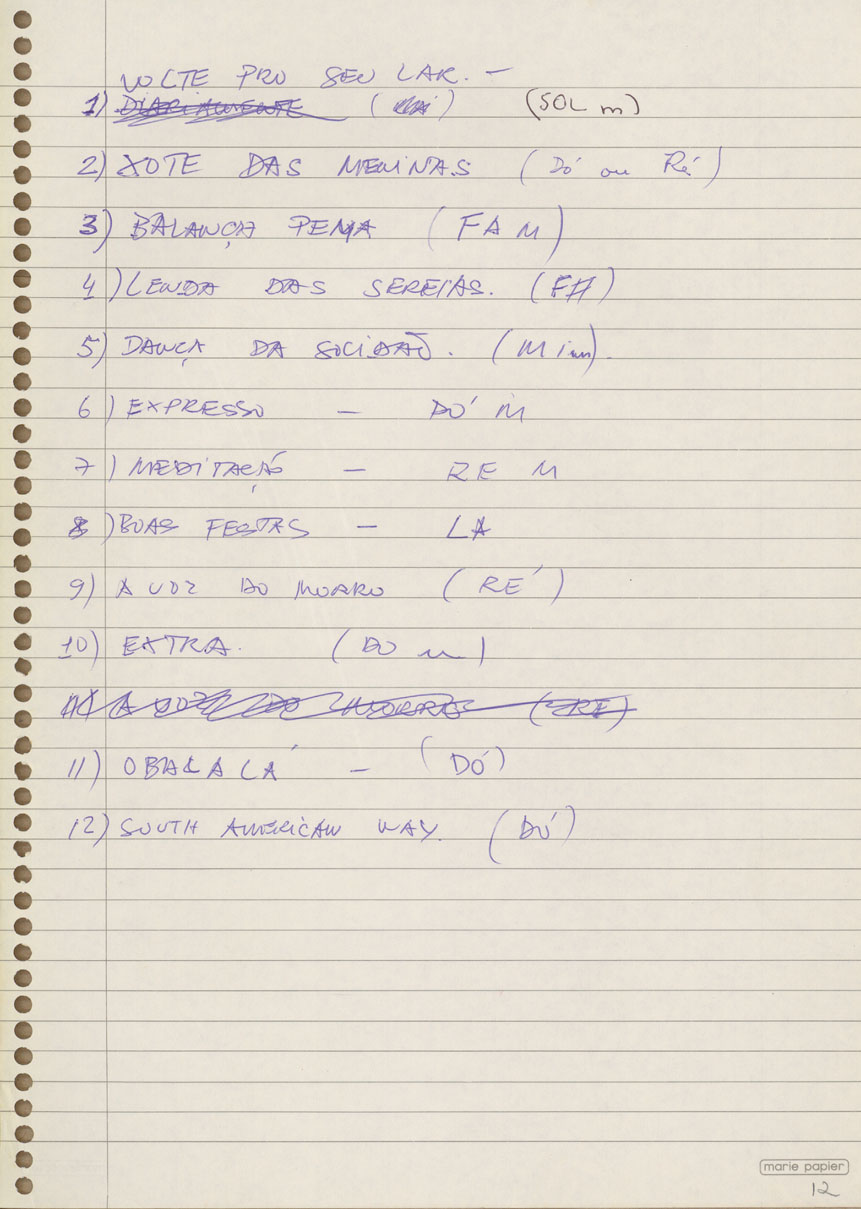 VOLTE PRO SEU LAR. —
1) DIARIAMENTE ( ) (SOL m)
2) XOTE DAS MENINAS (Dó ou Ré)
3) BALANÇA PEMA (FA M)
4) LENDA DAS SEREIAS. (F#)
5) DANÇA DA SOLIDÃO. (Mim).
6) EXPRESSO — DÓ M
7) MEDITAÇÃO — RE M
8) BOAS FESTAS — LA
9) A VOZ DO MORRO (RÉ)
10) EXTRA. (DO m)
11) A VOZ DO MORRO (RE)
11) OBALALÁ — (DÓ)
12) SOUTH AMERICAN WAY. (DÓ)
marie papier
12